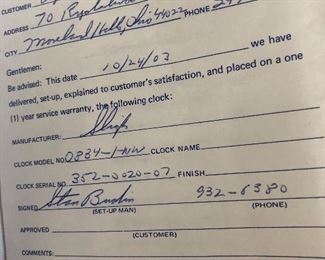 CUSTOMER
ADDRESS 70
CITY Moreland Hills, Ohio 44022 PHONE
Gentlemen:
Be advised: This date 10/24/03 we have
delivered, set-up, explained to customer's satisfaction, and placed on a one
(1) year service warranty, the following clock:
MANUFACTURER: Sligh
CLOCK MODEL NO. 0834-1-NW CLOCK NAME
CLOCK SERIAL NO. 352-0020-07 FINISH
SIGNED Stan 932-6380
(SET-UP MAN) (PHONE)
APPROVED
(CUSTOMER)
COMMENTS: